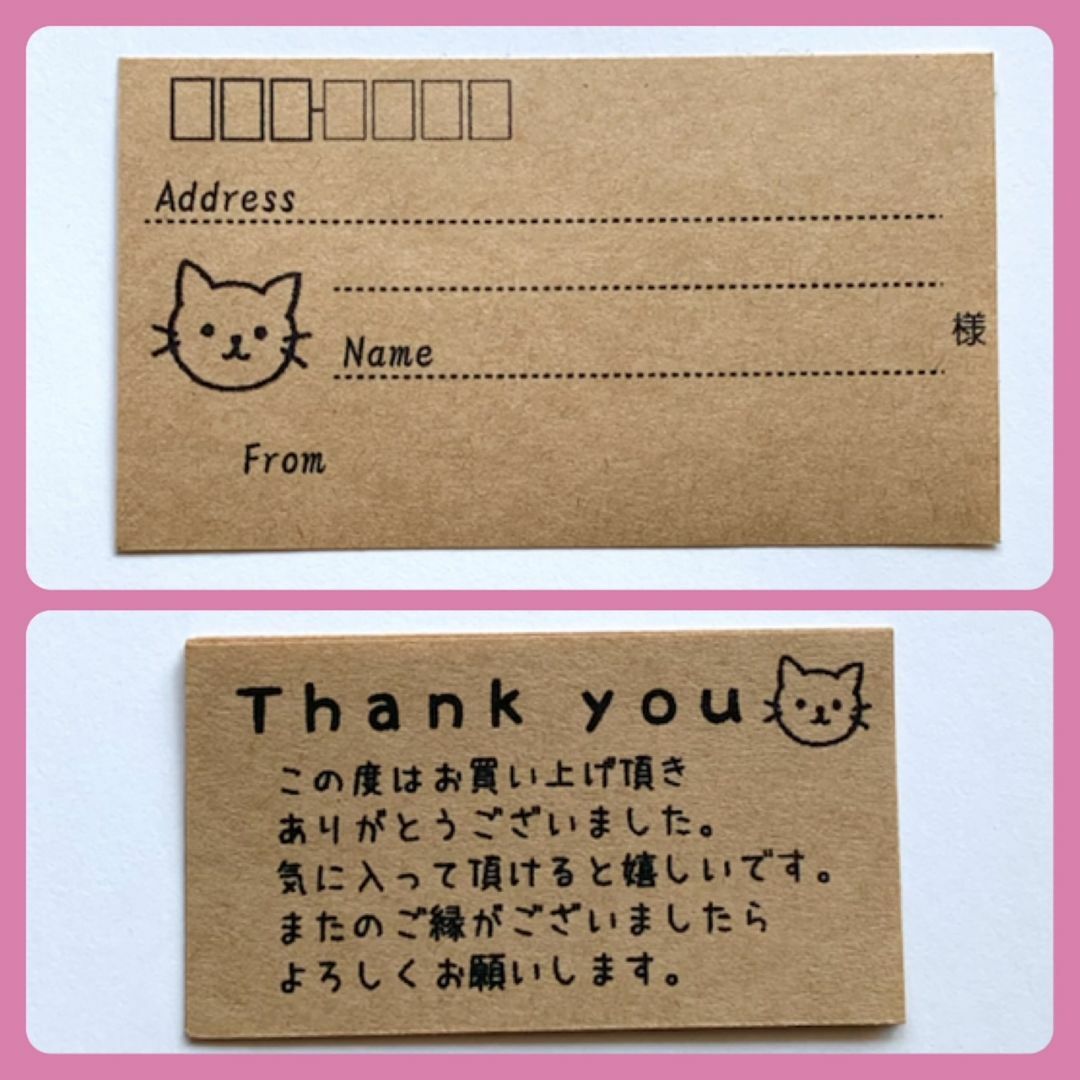 Address
Name
様
From
Thank you
この度はお買い上げ頂き
ありがとうございました。
気に入って頂けると嬉しいです。
またのご縁がございましたら
よろしくお願いします。